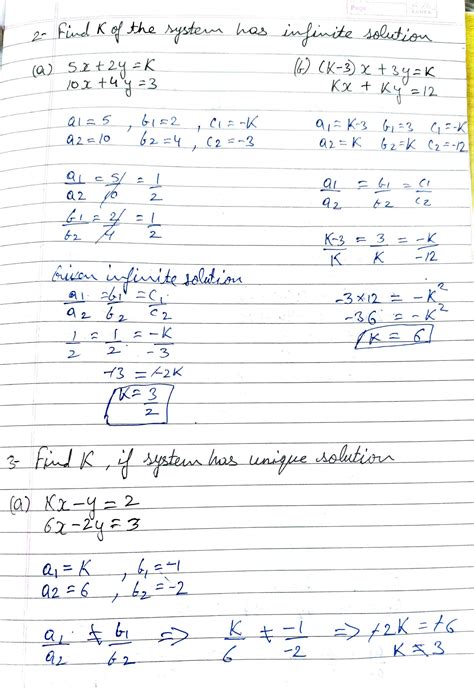 2- Find K of the system has infinite solution
(a) 5x+2y=K
10x+4y=3
a1=5 , b1=2 , c1=-K
a2=10 b2=4, c2=-3
a1/a2 = 5/10 = 1/2
b1/b2 = 2/4 = 1/2
Given infinite solution
a1/a2 = b1/b2 = c1/c2
1/2 = 1/2 = -K/-3
-3 = -2K
K = 3/2
(b) (K-3)x + 3y=K
Kx + Ky =12
a1=K-3 b1=3 c1=-K
a2=K b2=K c2=-12
a1/a2 = b1/b2 = c1/c2
K-3/K = 3/K = -K/-12
-3×12 = -K²
-36 = -K²
K = 6
3- Find K, if system has unique solution
(a) Kx-y=2
6x-2y=3
a1=K , b1=-1
a2=6 , b2=-2
a1/a2 ≠ b1/b2 => K/6 ≠ -1/-2 => +2K = +6
K ≠ 3